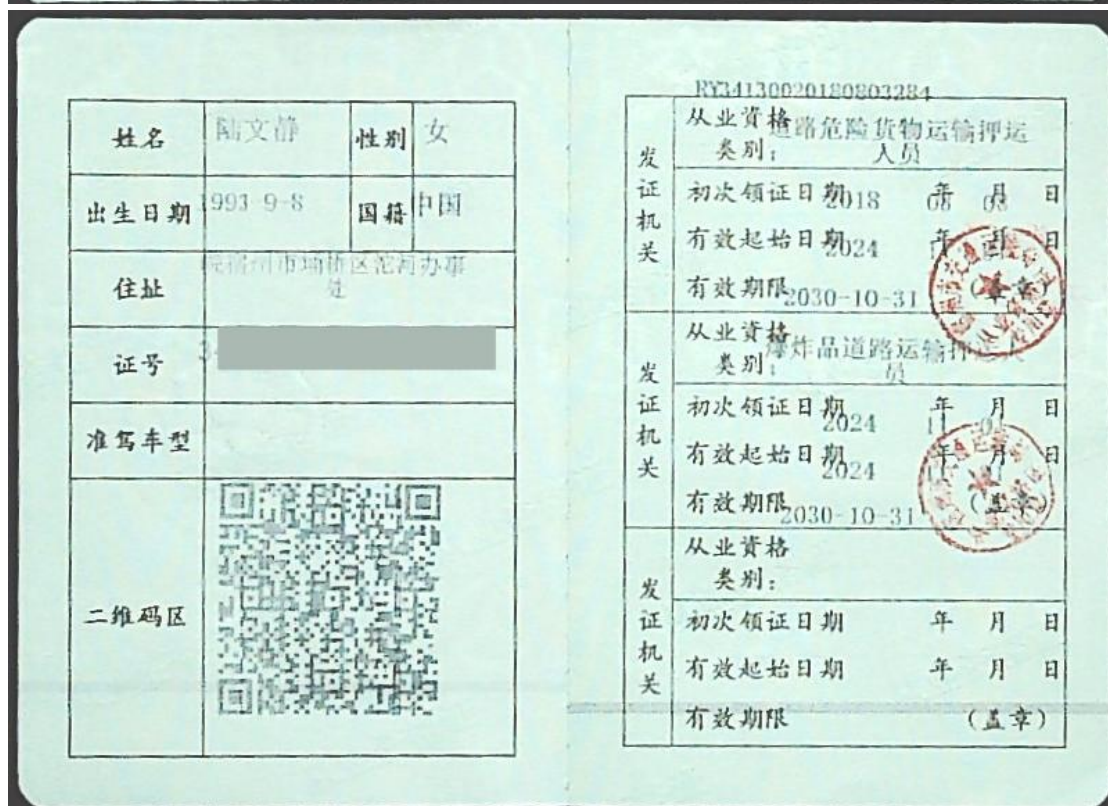 姓名 陆文静 性别 女
出生日期 1993-9-8 国籍 中国
住址 皖宿州市埇桥区沱河办事处
证号 3
准驾车型
二维码区
RY34130020180803284
发证机关
从业资格类别: 道路危险货物运输押运人员
初次领证日期 2018 年 08 月 03 日
有效起始日期 2024 年 月 日
有效期限 2030-10-31 (盖章)
发证机关
从业资格类别: 爆炸品道路运输押运人员
初次领证日期 2024 年 11 月 01 日
有效起始日期 2024 年 月 日
有效期限 2030-10-31 (盖章)
发证机关
从业资格类别:
初次领证日期 年 月 日
有效起始日期 年 月 日
有效期限 (盖章)